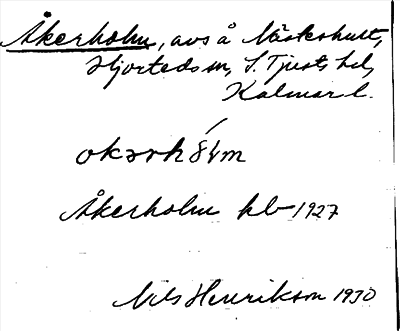 Åkerholm, avs å Näskshult,
Hjorteds sn, S. Tjusts hd,
Kalmar l.
Åkerholm hb 1927
Nils Henrikson 1930